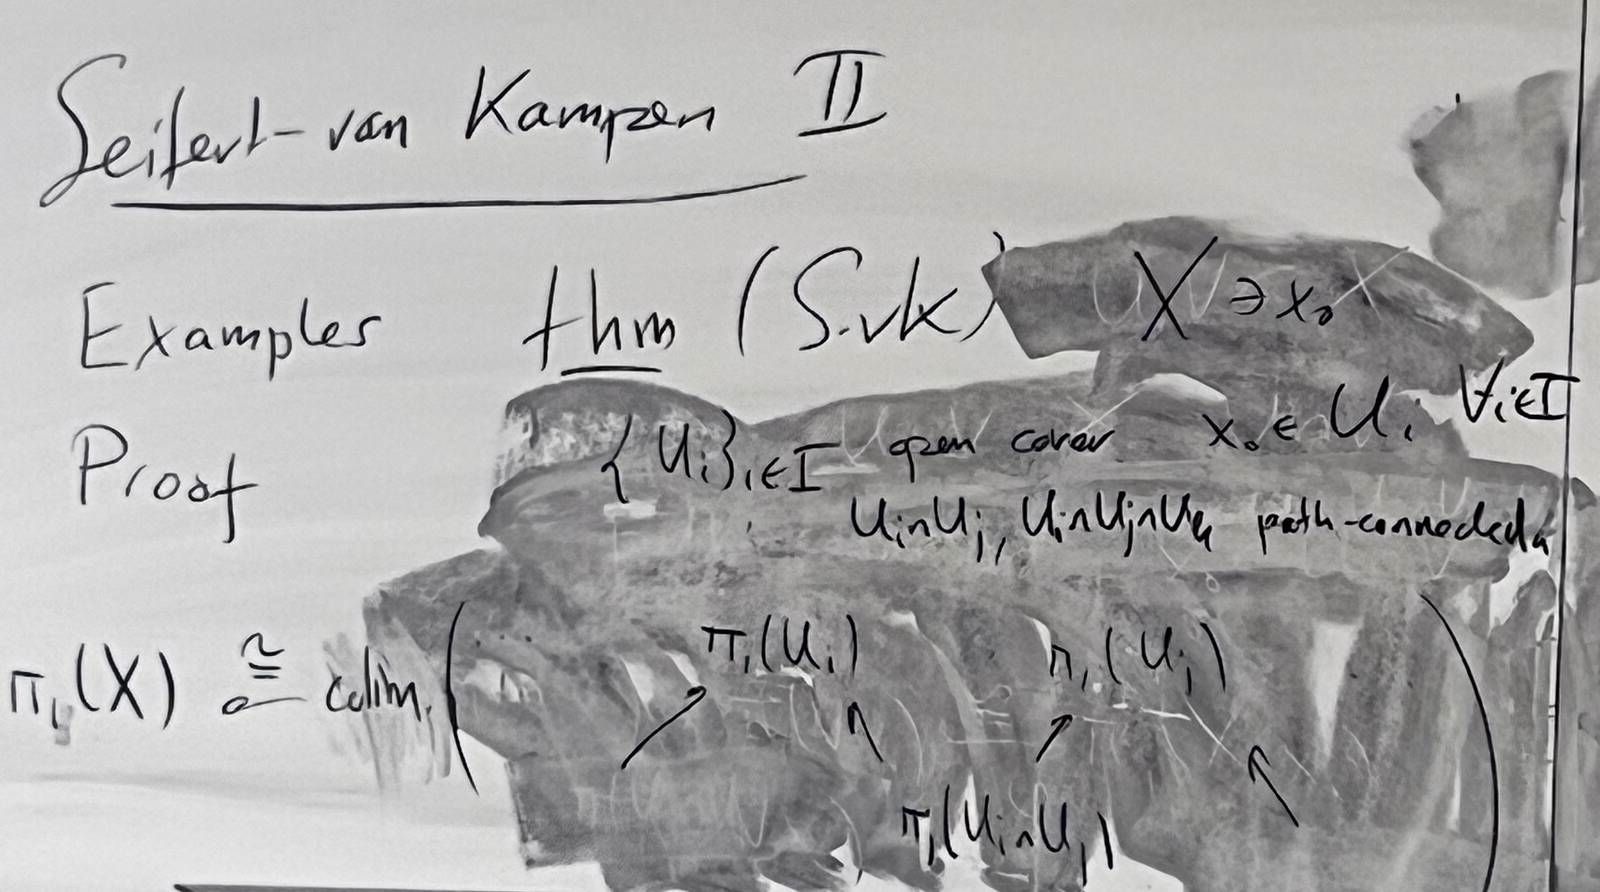 Seifert-van Kampen II
Examples thm (S.vK) X ∋ x₀
Proof {Uᵢ}ᵢ∈I open cover x₀ ∈ Uᵢ ∀i∈I
Uᵢ∩Uⱼ, Uᵢ∩Uⱼ∩Uₖ path-connected
π₁(X) ≅ colim ( π₁(Uᵢ) π₁(Uⱼ) )
π₁(Uᵢ∩Uⱼ)